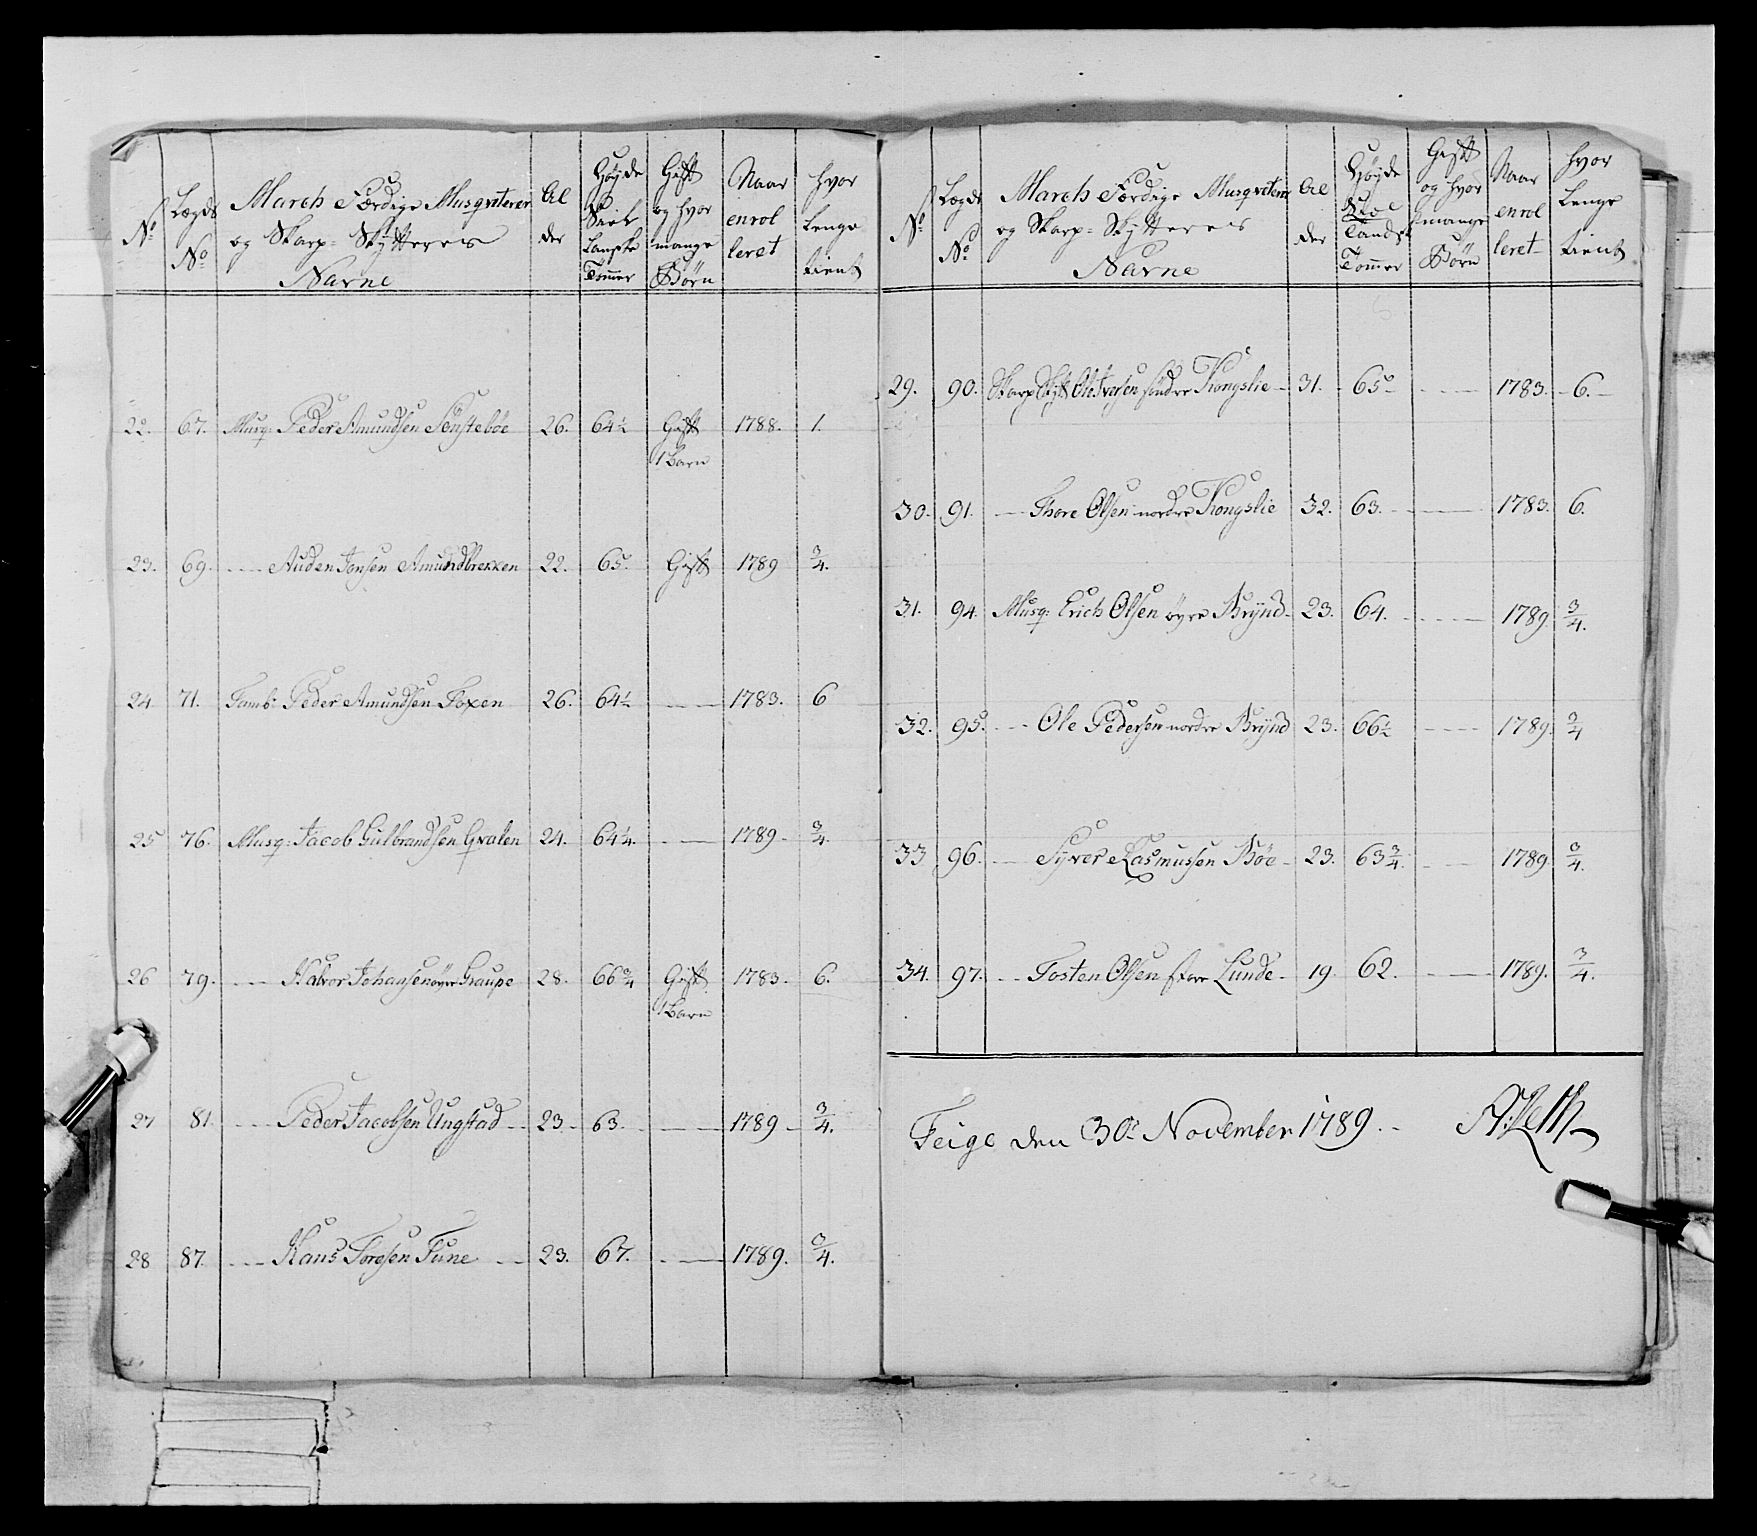 No Lægds No March Færdige Musqveterer og Skarp-Skytteres Navne Al der Høyde Sielandske Tommer Gift og hvor mange Børn Naar enrolleret hvor Lenge tient
22. 67. Musq: Peder Amundsen Sønstebøe 26. 64½ Gift 1788. 1.
1 Barn
23. 69. — Auden Jonsen Amundbrekken 22. 65. Gift 1789 ¾.
24. 71. Tamb: Peder Amundsen Foxen 26. 64½ — 1783. 6
25 76. Musq: Jacob Gulbrandsen Qvalen 24. 64¼. — 1789. ¾.
26 79. — Halvor Johansen øvre Graupe 28. 66¾ Gift 1783. 6.
1 Barn
27 81. — Peder Jacobsen Ungstad 23. 63. — 1789 ¾.
28 87. — Hans Toresen Tune 23. 67. — 1789. ¾.
No Lægds No March Færdige Musqveterer og Skarp-Skytteres Navne Al der Høyde Tommer Gift og hvor mange Børn Naar enrolleret hvor Lenge tient
29. 90. Skarp Skyt Ole Iversen søndre Kongslie 31. 65. — 1783. 6.
30. 91. — Thore Olsen nordre Kongslie 32. 63. — 1783. 6.
31. 94. Musq: Erich Olsen øvre Brynd 23. 64. — 1789. ¾.
32. 95. — Ole Pedersen nordre Brynd 23. 66½ — 1789. ¾
33 96. — Syver Rasmussen Bøe 23. 63¾. — 1789. ¾.
34. 97. — Tosten Olsen store Lunde 19. 62. — 1789. ¾.
Feige den 30te November 1789. A: Leth